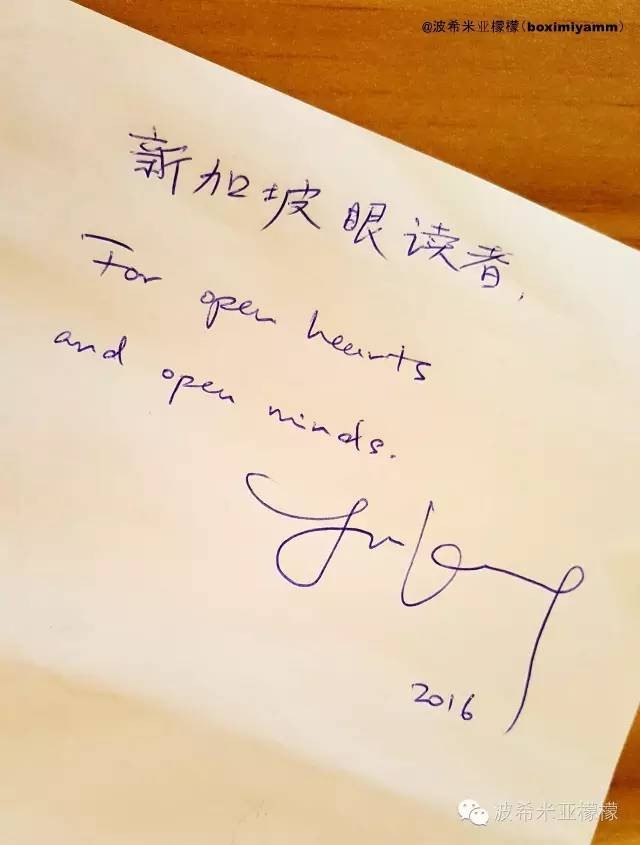 @波希米亚檬檬(boximiyamm)
新加坡眼读者,
For open hearts
and open minds.
2016
波希米亚檬檬